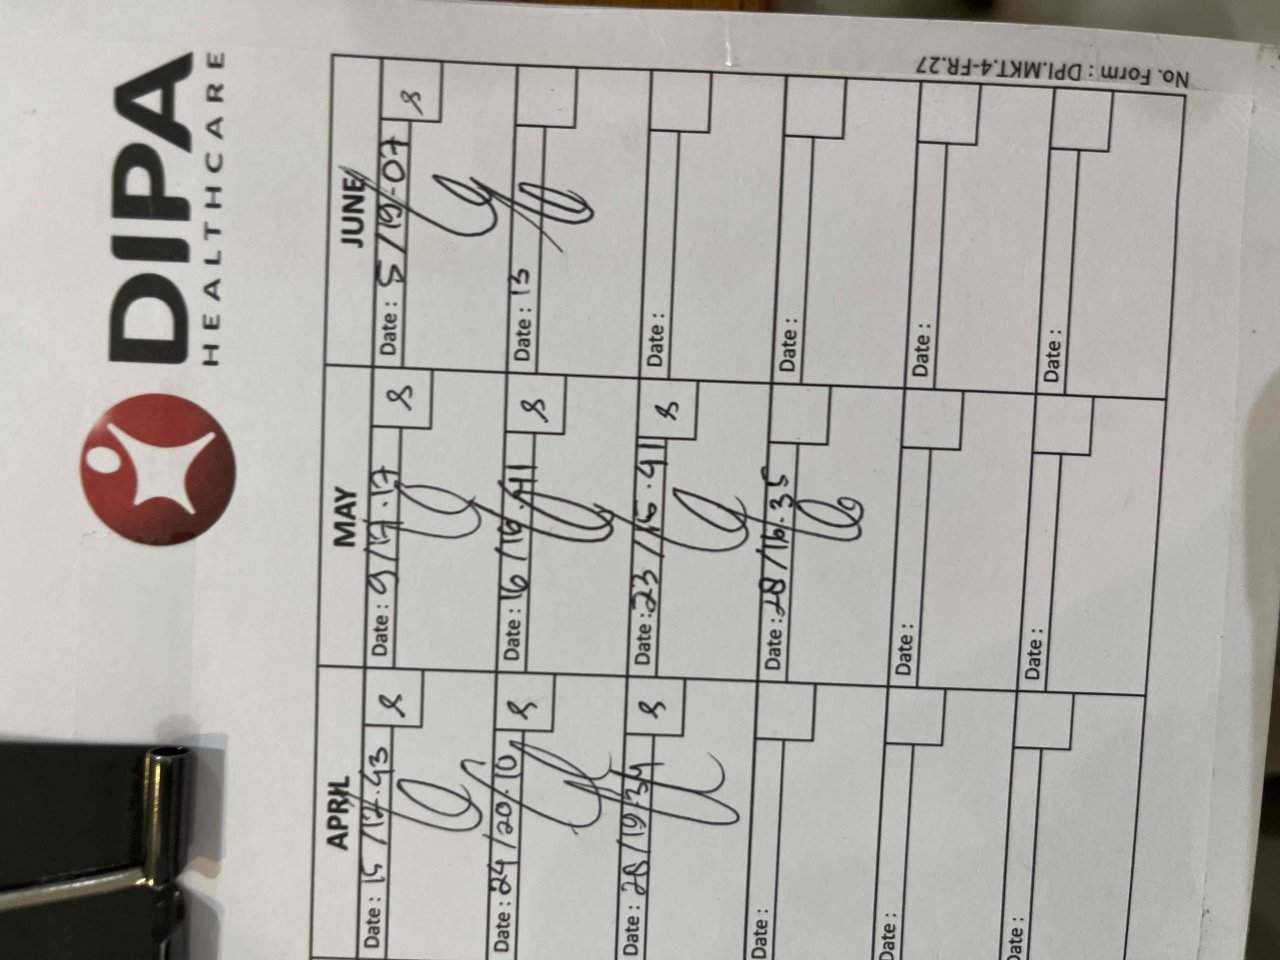 DIPA
HEALTHCARE
No. Form : DPI.MKT.4-FR.27
APRIL MAY JUNE
Date : 15 / 17.43 Date : 9 / 17.17 Date : 5 / 19.07
Date : 24 / 20.10 Date : 16 / 16.41 Date : 13
Date : 28 / 19.34 Date : 23 / 16.41 Date :
Date : Date : 28 / 16.35 Date :
Date : Date : Date :
Date : Date : Date :